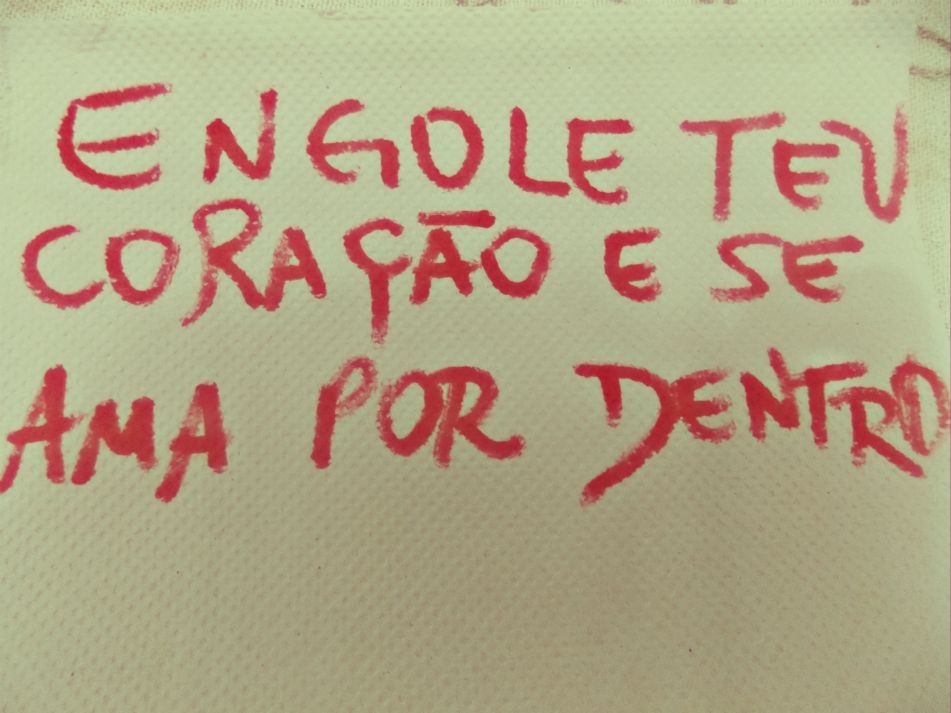 ENGOLE TEU
CORAÇÃO E SE
AMA POR DENTRO